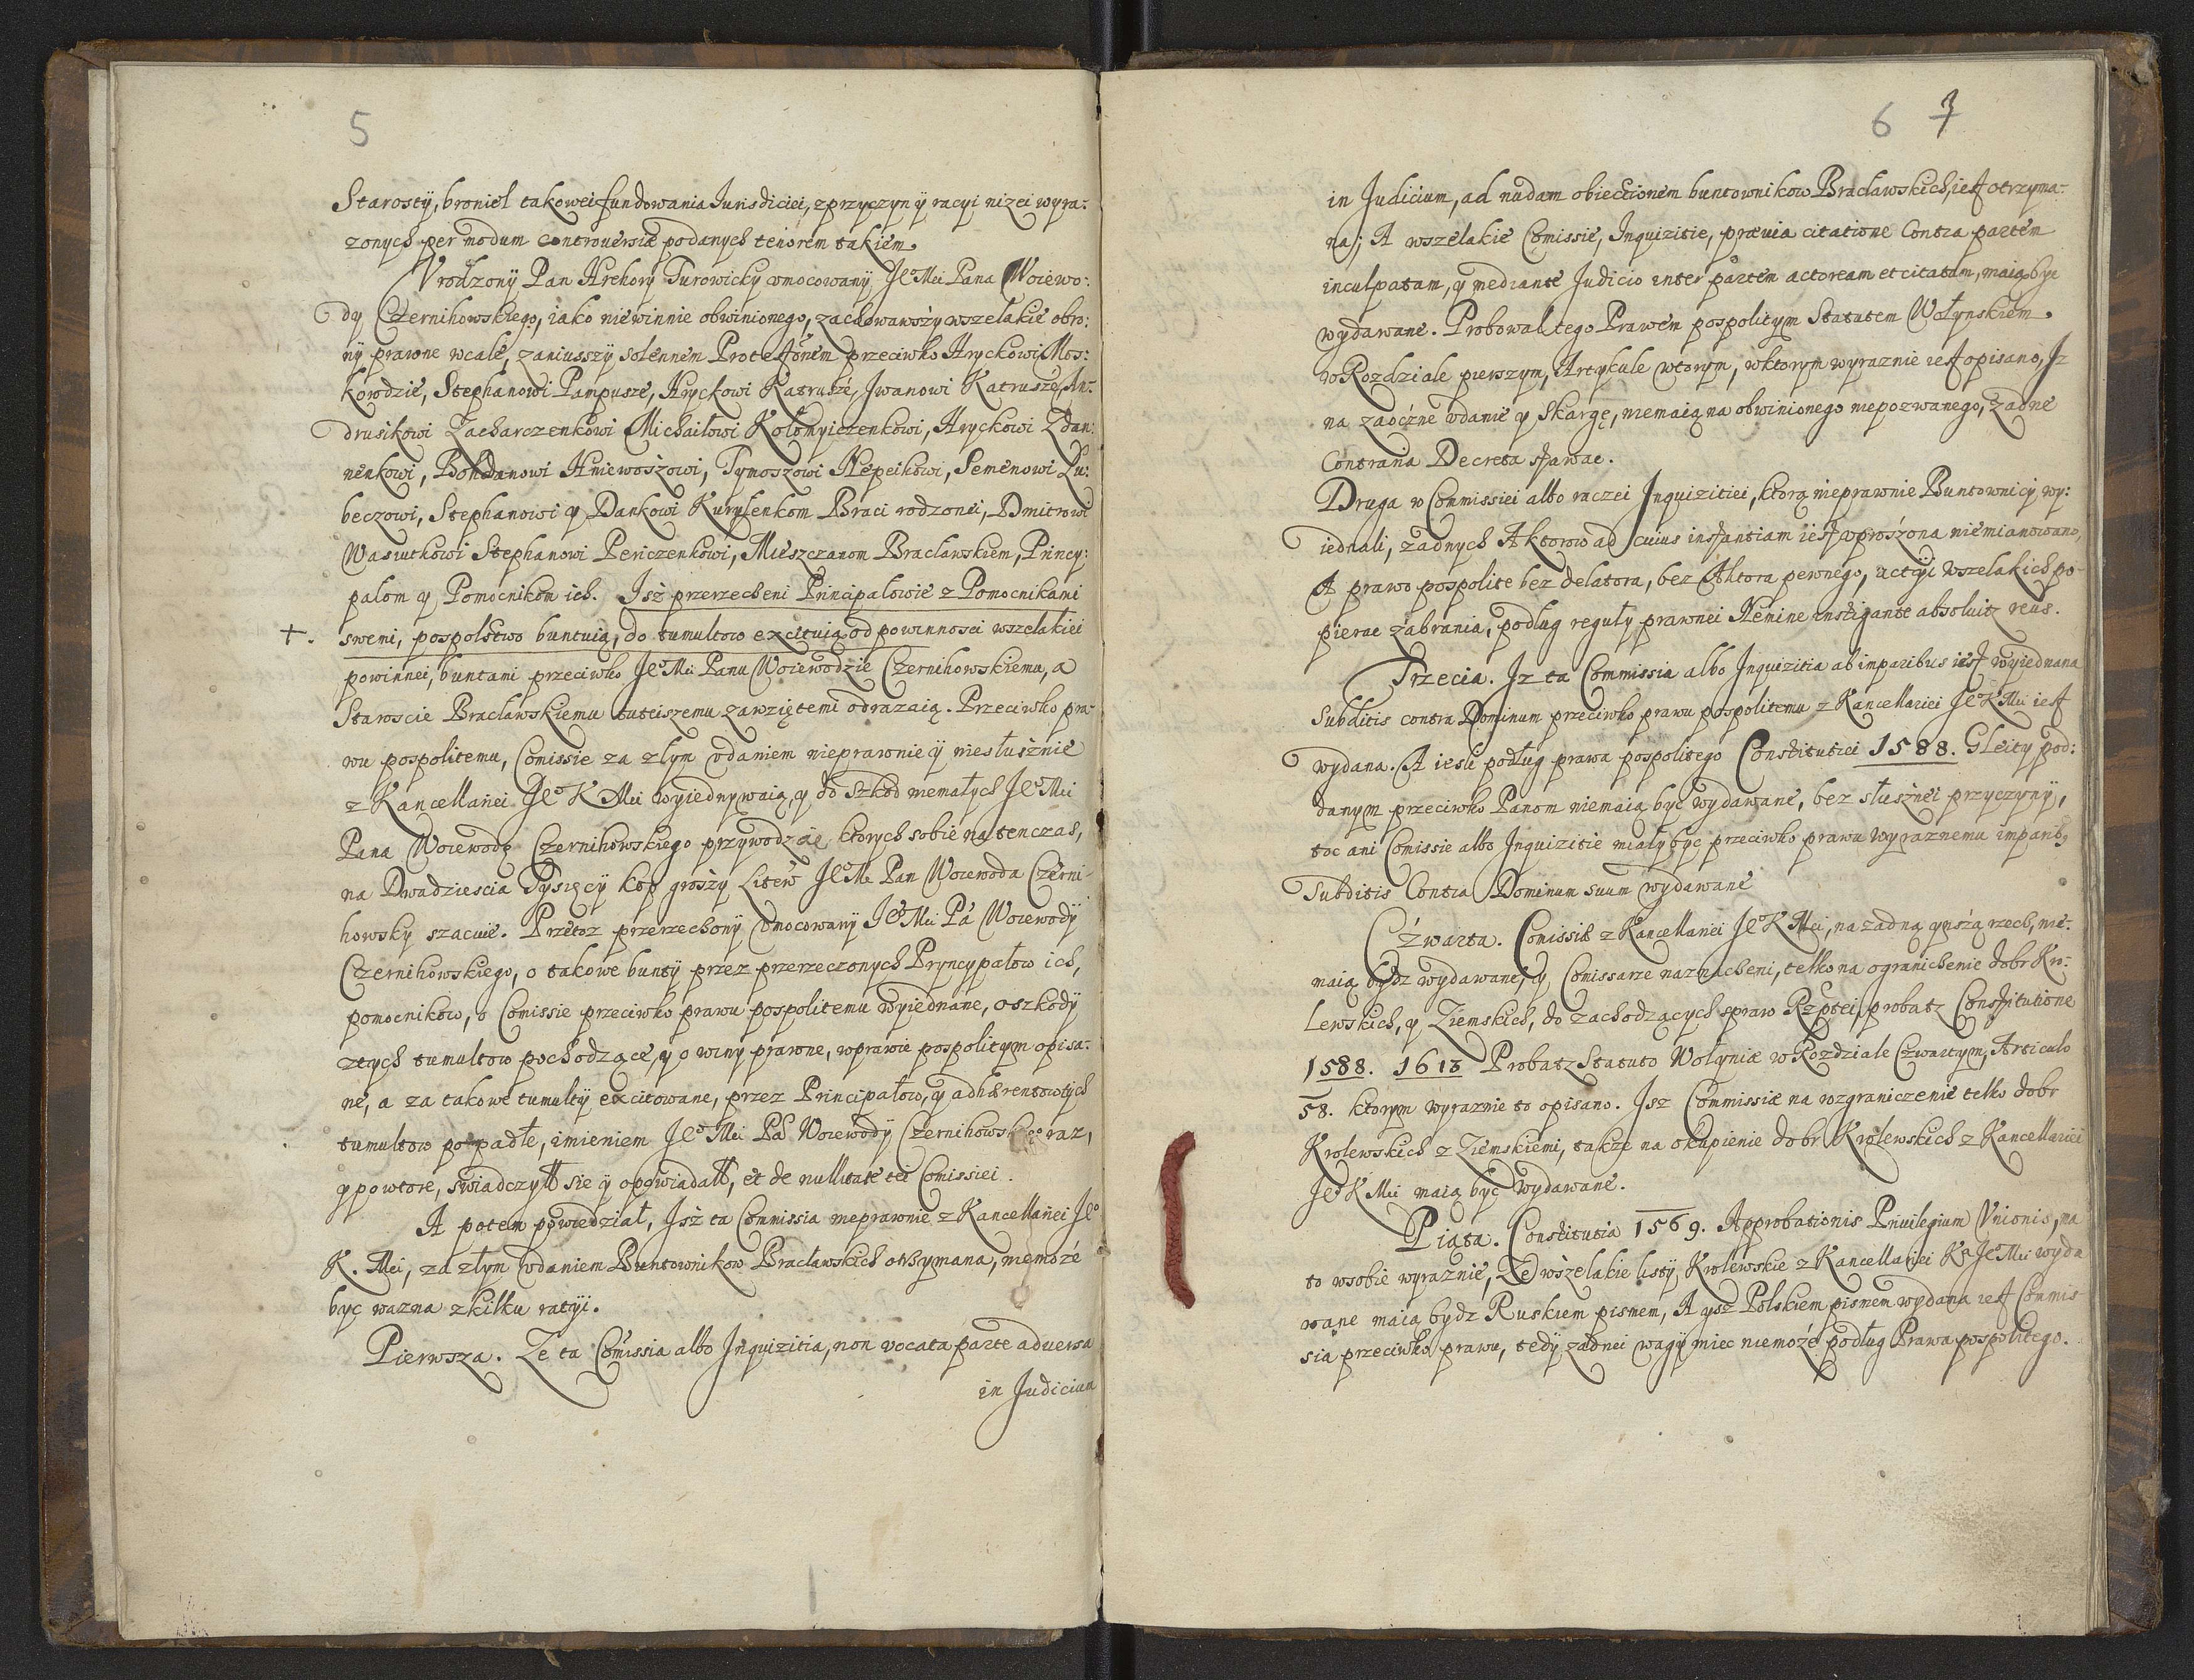 5
Starostÿ, bronieł takowei fundowania Iurisdiciei, z przyczyn ÿ racyi nizei wyra:
zonych per modum controuersiæ podanych tenorem takiem.
Vrodzonÿ Pan Hrehorÿ Turowickÿ vmocowanÿ Je° Mći Pana Woiewo:
dy Czernihowskiego, iako niewinnie obwinionego, zachowawszÿ wszelakie obro:
nÿ prawne wcale, zaniusszÿ solennem Protestõnem przeciwko Hryckowi Mos:
kowdzie, Stephanowi Pampusze, Hryckowi Katrusze, Jwanowi Katrusze, An:
drusikowi Zacharczenkowi Michaiłowi Kołomyiczenkowi, Hryckowi Zdan:
nenkowi, Bohdanowi Hniewoszowi, Tymoszowi Nepeikowi, Semenowi Lu:
beczowi, Stephanowi y Dankowi Kurysenkom Braci rodzonei, Dmitrowi
Wasiutkowi Stephanowi Periczenkowi, Mieszczanom Bracławskiem, Princy:
palom y Pomocnikom ich. Jsz przerzecheni Principalowie z Pomocnikami
+. swemi, pospolstwo buntuią, do tumultow excituią od powinnosci wszelakiei
powinnei, buntami przeciwko Je° Mći Panu Woiewodzie Czernihowskiemu, a
Staroscie Bracławskiemu tuteiszemu zawziętemi odrazaią. Przeciwko pra-
wu pospolitemu, Comissie za złym vdaniem nieprawnie ÿ niesłusznie
z Kancellariei Je° K Mći wyiednywaią, y do szkod niemałych Je° Mći
Pana Woiewodę Czernihowskiego przywodzą, ktorych sobie na tenczas,
na Dwadziescia Tysięcÿ kop groszÿ Litew Je° Mć Pan Woiewoda Czerni-
howskÿ szacuie. Przetoz przerzechonÿ Vmocowanÿ Je° Mći Pa Woiewodÿ
Czernihowskiego, o takowe buntÿ przez przerzeczonych Pryncypałow ich,
pomocnikow, o Comissie przeciwko prawu pospolitemu wyiednane, o szkodÿ
ztych tumultow pochodzące, y o winy prawne, wprawie pospolitym opisa:
ne, a za takowe tumultÿ excitowane, przez Principałow, y adhærentow tych
tumultow popadłe, imieniem Je° Mći Pa Woiewodÿ Czernihowskie° raz,
y powtore, swiadczył sie ÿ opowiadał, et de nullitate tei Comissiei.
A potem powiedział, Jsz ta Commissia nieprawnie z Kancellariei Je°
K. Mći, za złym vdaniem Buntownikow Bracławskich otrzymana, niemoze
byc wazna z kilku ratÿi.
Pierwsza. Ze ta Comissia albo Inquizitia, non vocata parte aduersa
in Judicium
6 7
in Judicium, ad nudam obiectionem buntownikow Bracławskich, iest otrzyma:
na; A wszelakie Comissie, Inquizitie, præuia citatione Contra partem
inculpatam, y mediante Judicio inter partem actoream et citatam, maią byc
wydawane. Probował tego Prawem pospolitym Statutem Wołynskiem.
w Rozdziale pierszym, Artykule wtorym, w ktorym wyraznie iest opisano, Jz
na zaoczne vdanie y Skargę, niemaią na obwinionego niepozwanego, zadne
Contraria Decreta stawac.
Druga w Commissiei albo raczei Inquizitiei, ktorą nieprawnie Buntownicÿ wy:
iednali, zadnych Aktorow ad cuius instantiam iest vproszona niemianowano,
A prawo pospolite bez delatora, bez Aktora pewnego, actÿi wszelakich po-
pierac zabrania, podług regułÿ prawnei Nemine instigante absoluitr reus.
Trzecia. Jz ta Commissia albo Inquizitia ab imparibus iest wyiednana
Subditis contra Dominum przeciwko prawu pospolitemu z Kancellariei Je° K Mći iest
wydana. A iesli podług prawa pospolitego Constitutiei 1588. Gleity pod:
danym przeciwko Panom niemaią byc wydawane, bez słusznei przyczynÿ,
toc ani Comissie albo Inquizitie miały byc przeciwko prawu wyraznemu imparib9
Subditis Contra Dominum suum wydawane
Czwarta. Comissie z Kancellariei Je° K Mći, na zadną ynszą rzech, nie:
maią bydz wydawane, y Comissarze naznacheni, telko na ogranichenie dobr Kro:
lewskich, y Ziemskich, do zachodzących spraw Rzptei, probatr Constitutione
1588. 1613 Probatr Statuto Wołyniæ w Rozdziale Czwartym, Articulo
58. ktorym wyraznie to opisano. Jsz Commissiæ na rozgraniczenie telko dobr
Krolewskich z Ziemskiemi, takze na okupienie dobr Krolewskich z Kancellariei
Je° K Mći maią byc wydawane.
Piąta. Constitutia 1569. Approbationis Priuilegium Vnionis, ma
to wsobie wyraznie, Ze wszelakie listÿ Krolewskie z Kancellariei K° Je° Mći wyda
wane maią bydz Ruskiem pismem, A ysz Polskiem pismem wydana iest Commis
sia przeciwko prawu, tedÿ zadnei wagÿ miec niemoze podług Prawa pospolitego.